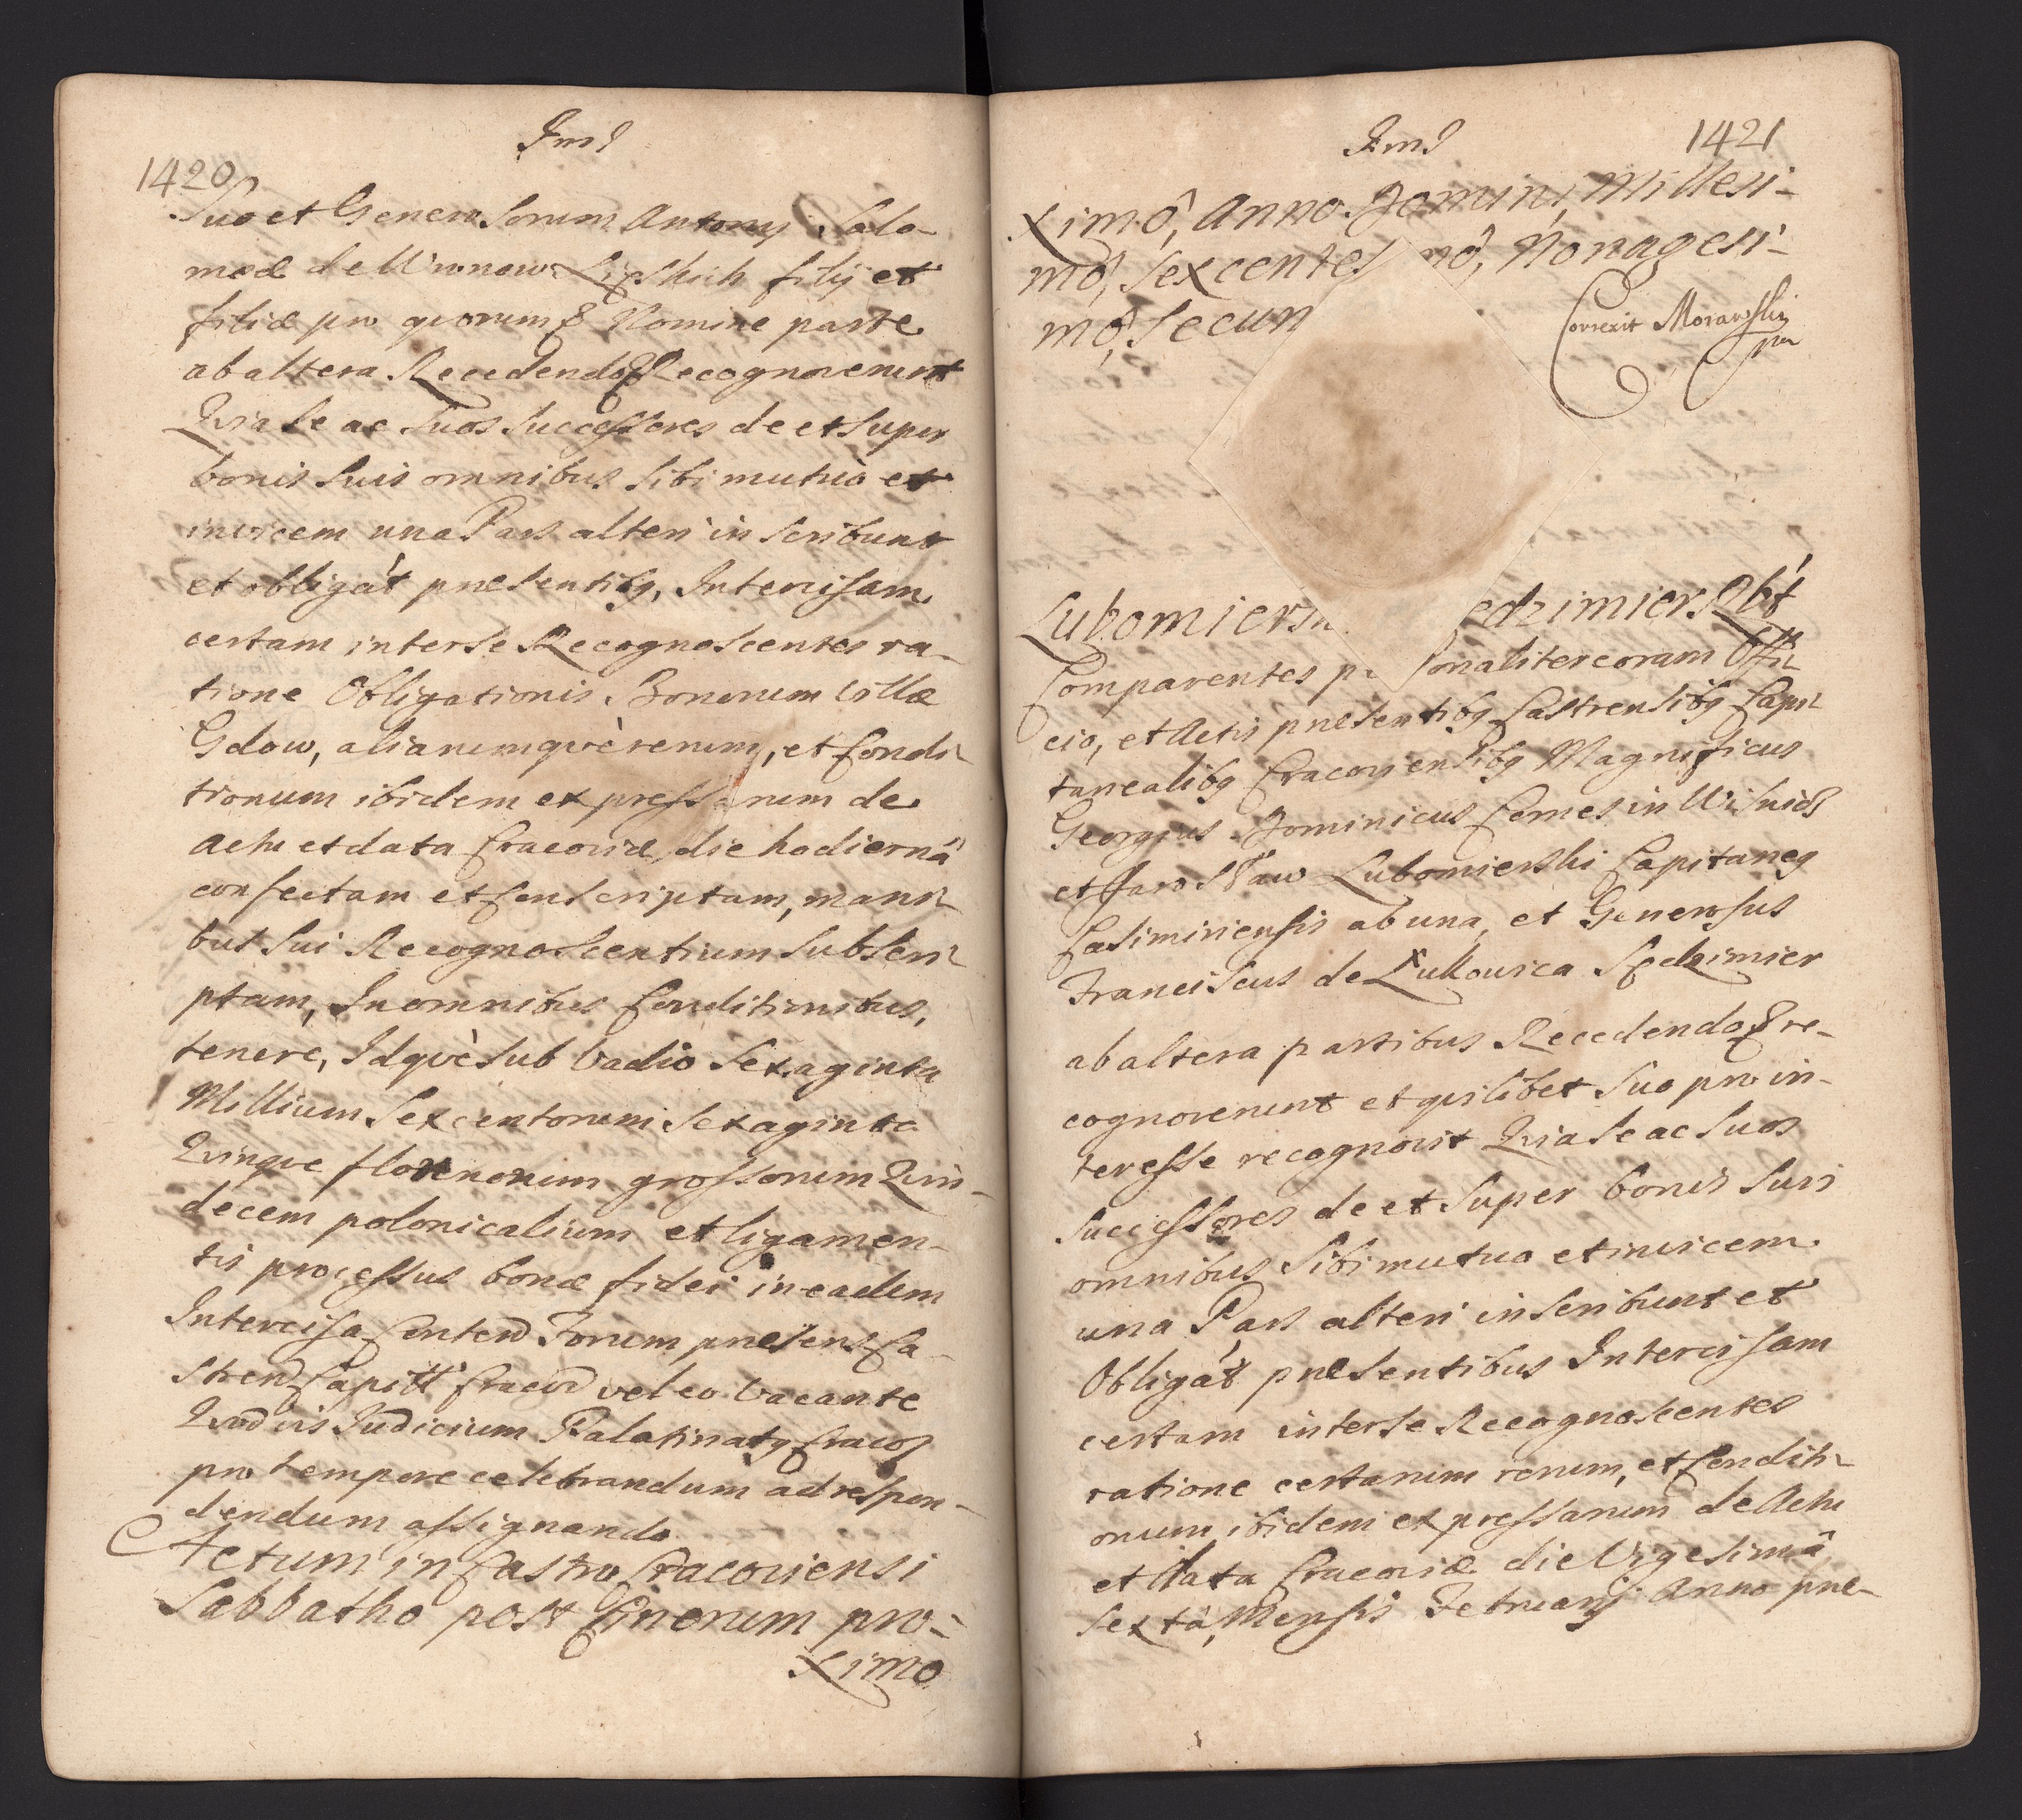 1420
Suo et Generosorum Antonij Salo-
meæ de Wronow Lipskich filij et
filiæ pro quorum Nomine parte
ab altera Recedendo Recognoverunt
Quia se ac suos Successores de et super
bonis suis omnibus sibi mutuò et
invicem una Pars alteri inscribunt
et obligāt præsentibq, Intercisam
certam inter se Recognoscentes ra-
tione Obligationis Bonorum Villæ
Gdow, aliarumquè rerum, et Condi-
tionum ibidem expressarum de
actu et data Cracoviæ die hodiernâ
confectam et Conscriptam, mani-
bus sui Recognoscentium subscri-
ptam, In omnibus Conditionibus,
tenere, Idquè sub Vadio Sexaginta
Millium Sexcentorum Sexaginta
Quinque florenorum grossorum Quin-
decem polonicalium et ligamen-
tis processus bonæ fidei in eadem
Intercisa Conten Forum præsens Ca-
stren Capitt Cracov vel eo Vacante
Quodvis Judicium Palatinatq Cracov
pro tempore celebrandum ad respon-
dendum assignando
Actum in Castro Cracoviensi
Sabbatho post Cinerum pro-
ximo
1421
ximô, Anno Domini, Millesi-
mô, Sexcentes nô, Nonagesi-
mô, Secun
Correxit Morawski
mp
Lubomiersk edzimier Obt
Comparentes p sonaliter coram Offi-
cio, et Actis præsentibq Castrensibq Capi-
tanealibq Cracoviensibq Magnificus
Georgius Dominicus Comes in Wisnicz
et Jarosław Lubomierski Capitaneq
Casimiriensis ab una, et Generosus
Franciscus de Lukowica Sędzimier
ab altera partibus Recedendo re-
cognoverunt et quilibet suo pro in-
teresse recognovit Quia se ac suos
Successores de et super bonis suis
omnibus sibi mutuo et invicem
una Pars alteri inscribunt et
Obligāt præsentibus Intercisam
certam inter se Recognoscentes
ratione certarum rerum, et Conditi-
onum ibidem expressarum de Actu
et data Cracoviæ die Vigesimâ
sextâ, Mensis Februarij Anno præ-